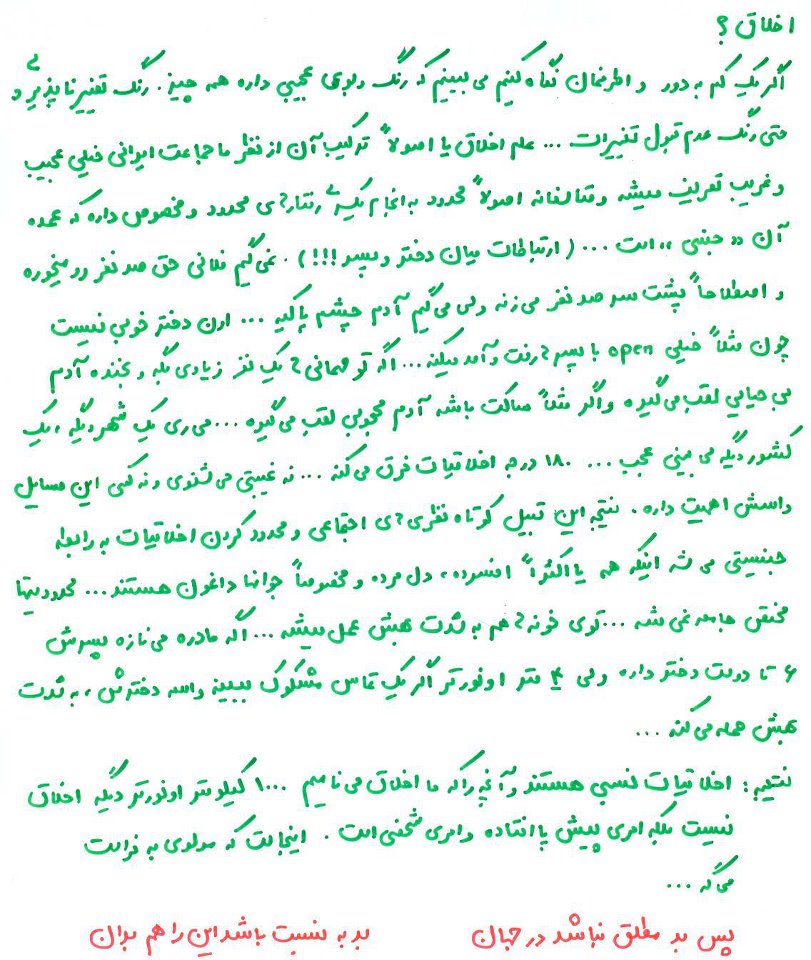 اخلاق ؟
اگر یک کم به دور و اطرفمان نگاه کنیم می بینیم که رنگ و بوی عجیبی داره همه چیز. رنگ تغییرناپذیری و
حتی رنگ عدم قبول تغییرات ... علم اخلاق یا اصولاً ترکیب آن از نظر ما جماعت ایرانی خیلی عجیب
و غریب تعریف میشه و متاسفانه اصولاً محدود به انجام یکسری رفتارهای محدود و مخصوص داره که عمده
آن «جنسی» است ... (ارتباطات میان دختر و پسر !!!) . نمی گیم فلانی حق صد نفر رو میخوره
و اصطلاحاً پشت سر صد نفر می زنه ولی می گیم آدم چشم پاکیه ... اون دختر خوبی نیست
چون مثلاً خیلی open با پسرها رفت و آمد میکنه ... اگه تو مهمانی ها یک نفر زیادی بگه و بخنده آدم
بی حیایی لقب می گیره و اگر مثلاً ساکت باشه آدم محجوبی لقب می گیره ... می ری یک شهر دیگه ، یک
کشور دیگه می بینی عجب ... ۱۸۰ درجه اخلاقیات فرق می کنه ... نه غیبتی می شنوی و نه کسی این مسایل
واسش اهمیت داره . نتیجه این قبیل کوتاه نظری های اجتماعی و محدود کردن اخلاقیات به رابطه
جنسیتی می شه اینکه همه یا اکثراً افسرده ، دل مرده و مخصوصاً جوانها داغون هستند ... محدودیتها
مختص جامعه نمی شه ... توی خونه ها هم به شدت بهش عمل میشه ... اگه مادره می نازه پسرش
۶ تا دوست دختر داره ولی ۴ متر اونورتر اگر یک تماس مشکوک ببینه واسه دخترش ، به شدت
بهش حمله می کنه ...
نتیجه : اخلاقیات نسبی هستند و آنچه را که ما اخلاق می نامیم ۱۰۰۰ کیلومتر اونورتر دیگه اخلاق
نیست بلکه امری پیش پا افتاده و امری شخصی است . اینجاست که مولوی به فراست
می گه ...
پس بد مطلق نباشد در جهان بد به نسبت باشد این را هم بدان